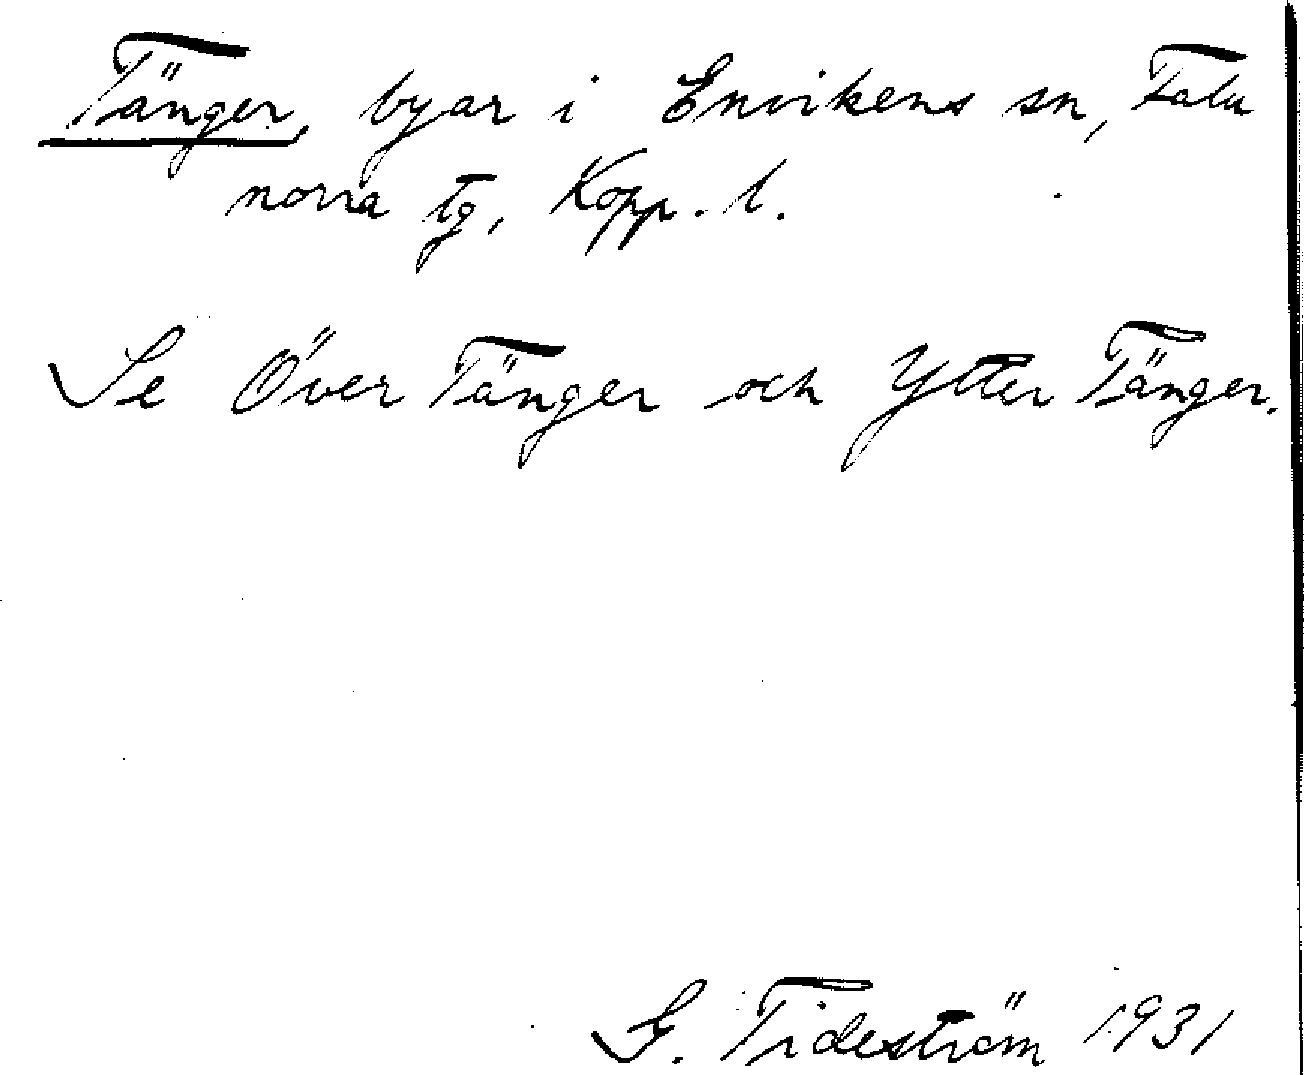 Tänger, byar i Envikens sn, Falu
norra tg, Kopp. l.
Se Över Tänger och Ytter Tänger.
G. Tideström 1931